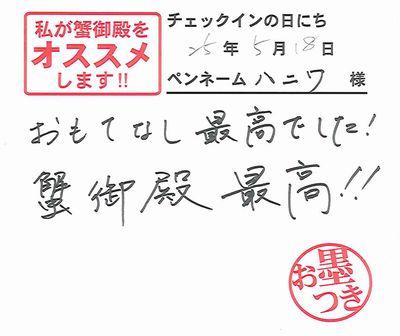 私が蟹御殿を
オススメ
します!!
チェックインの日にち
25年5月18日
ペンネーム ハニワ 様
おもてなし最高でした!
蟹御殿 最高!!
お墨つき